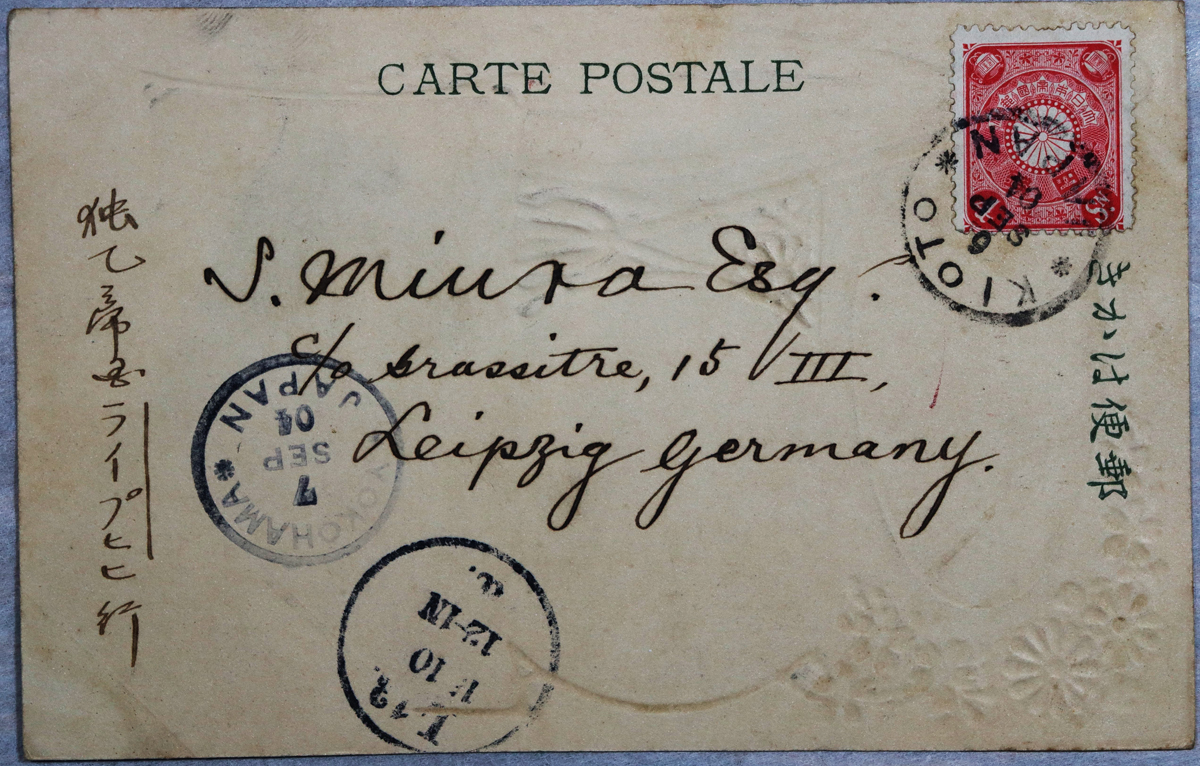 CARTE POSTALE
KIOTO
6 SEP 04
JAPAN
きかは便郵
S. Miura Esq.
c/o Grassistre, 15 III,
Leipzig Germany.
独乙帝国ライプヒヒ行
YOKOHAMA
JAPAN
7
SEP
04
10
12-1N